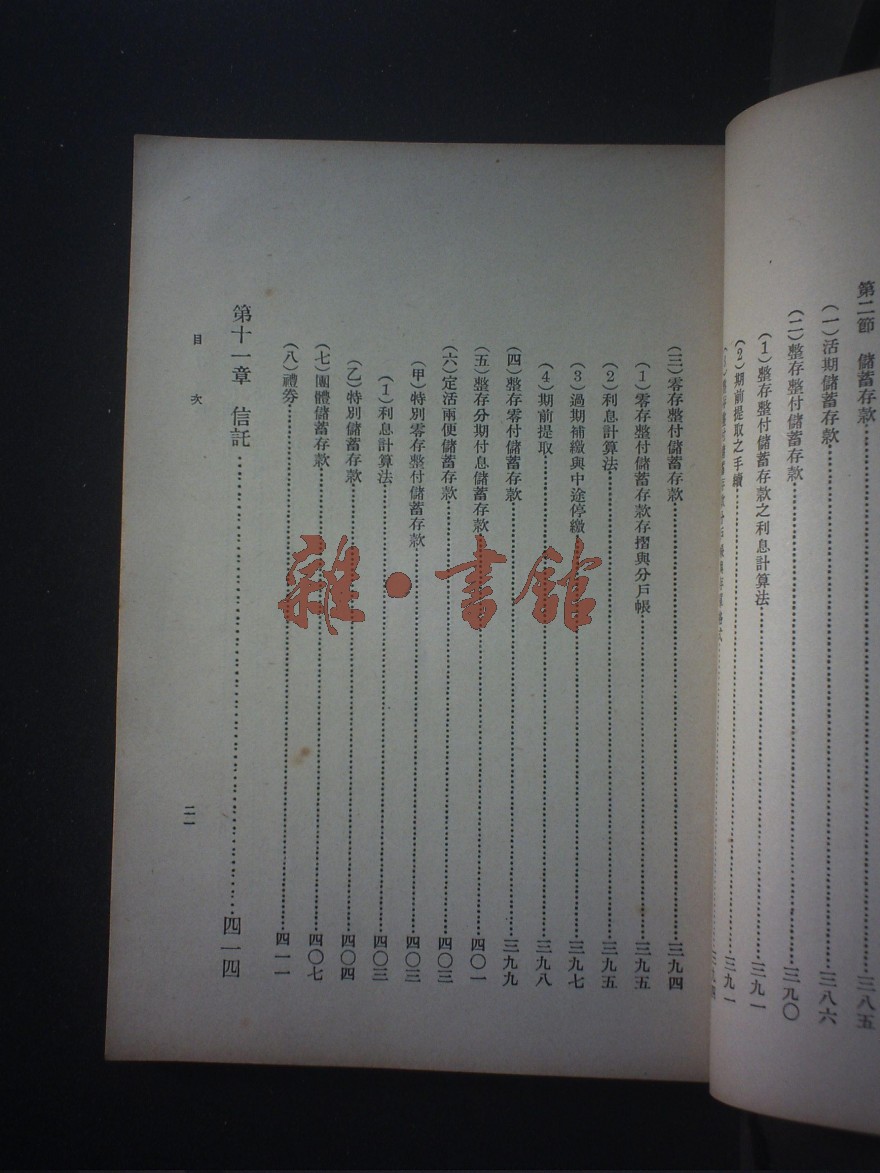 第二節　儲蓄存款……三八五
（一）活期儲蓄存款……三八六
（二）整存整付儲蓄存款……三九〇
（1）整存整付儲蓄存款之利息計算法……三九一
（2）期前提取之手續……三九一
（三）零存整付儲蓄存款……三九四
（1）零存整付儲蓄存款存摺與分戶帳……三九五
（2）利息計算法……三九五
（3）過期補繳與中途停繳……三九七
（4）期前提取……三九八
（四）整存零付儲蓄存款……三九九
（五）整存分期付息儲蓄存款……四〇一
（六）定活兩便儲蓄存款……四〇三
（甲）特別零存整付儲蓄存款……四〇三
（1）利息計算法……四〇三
（乙）特別儲蓄存款……四〇四
（七）團體儲蓄存款……四〇七
（八）禮券……四一一
第十一章　信託……四一四
目　次
二一
雜·書館